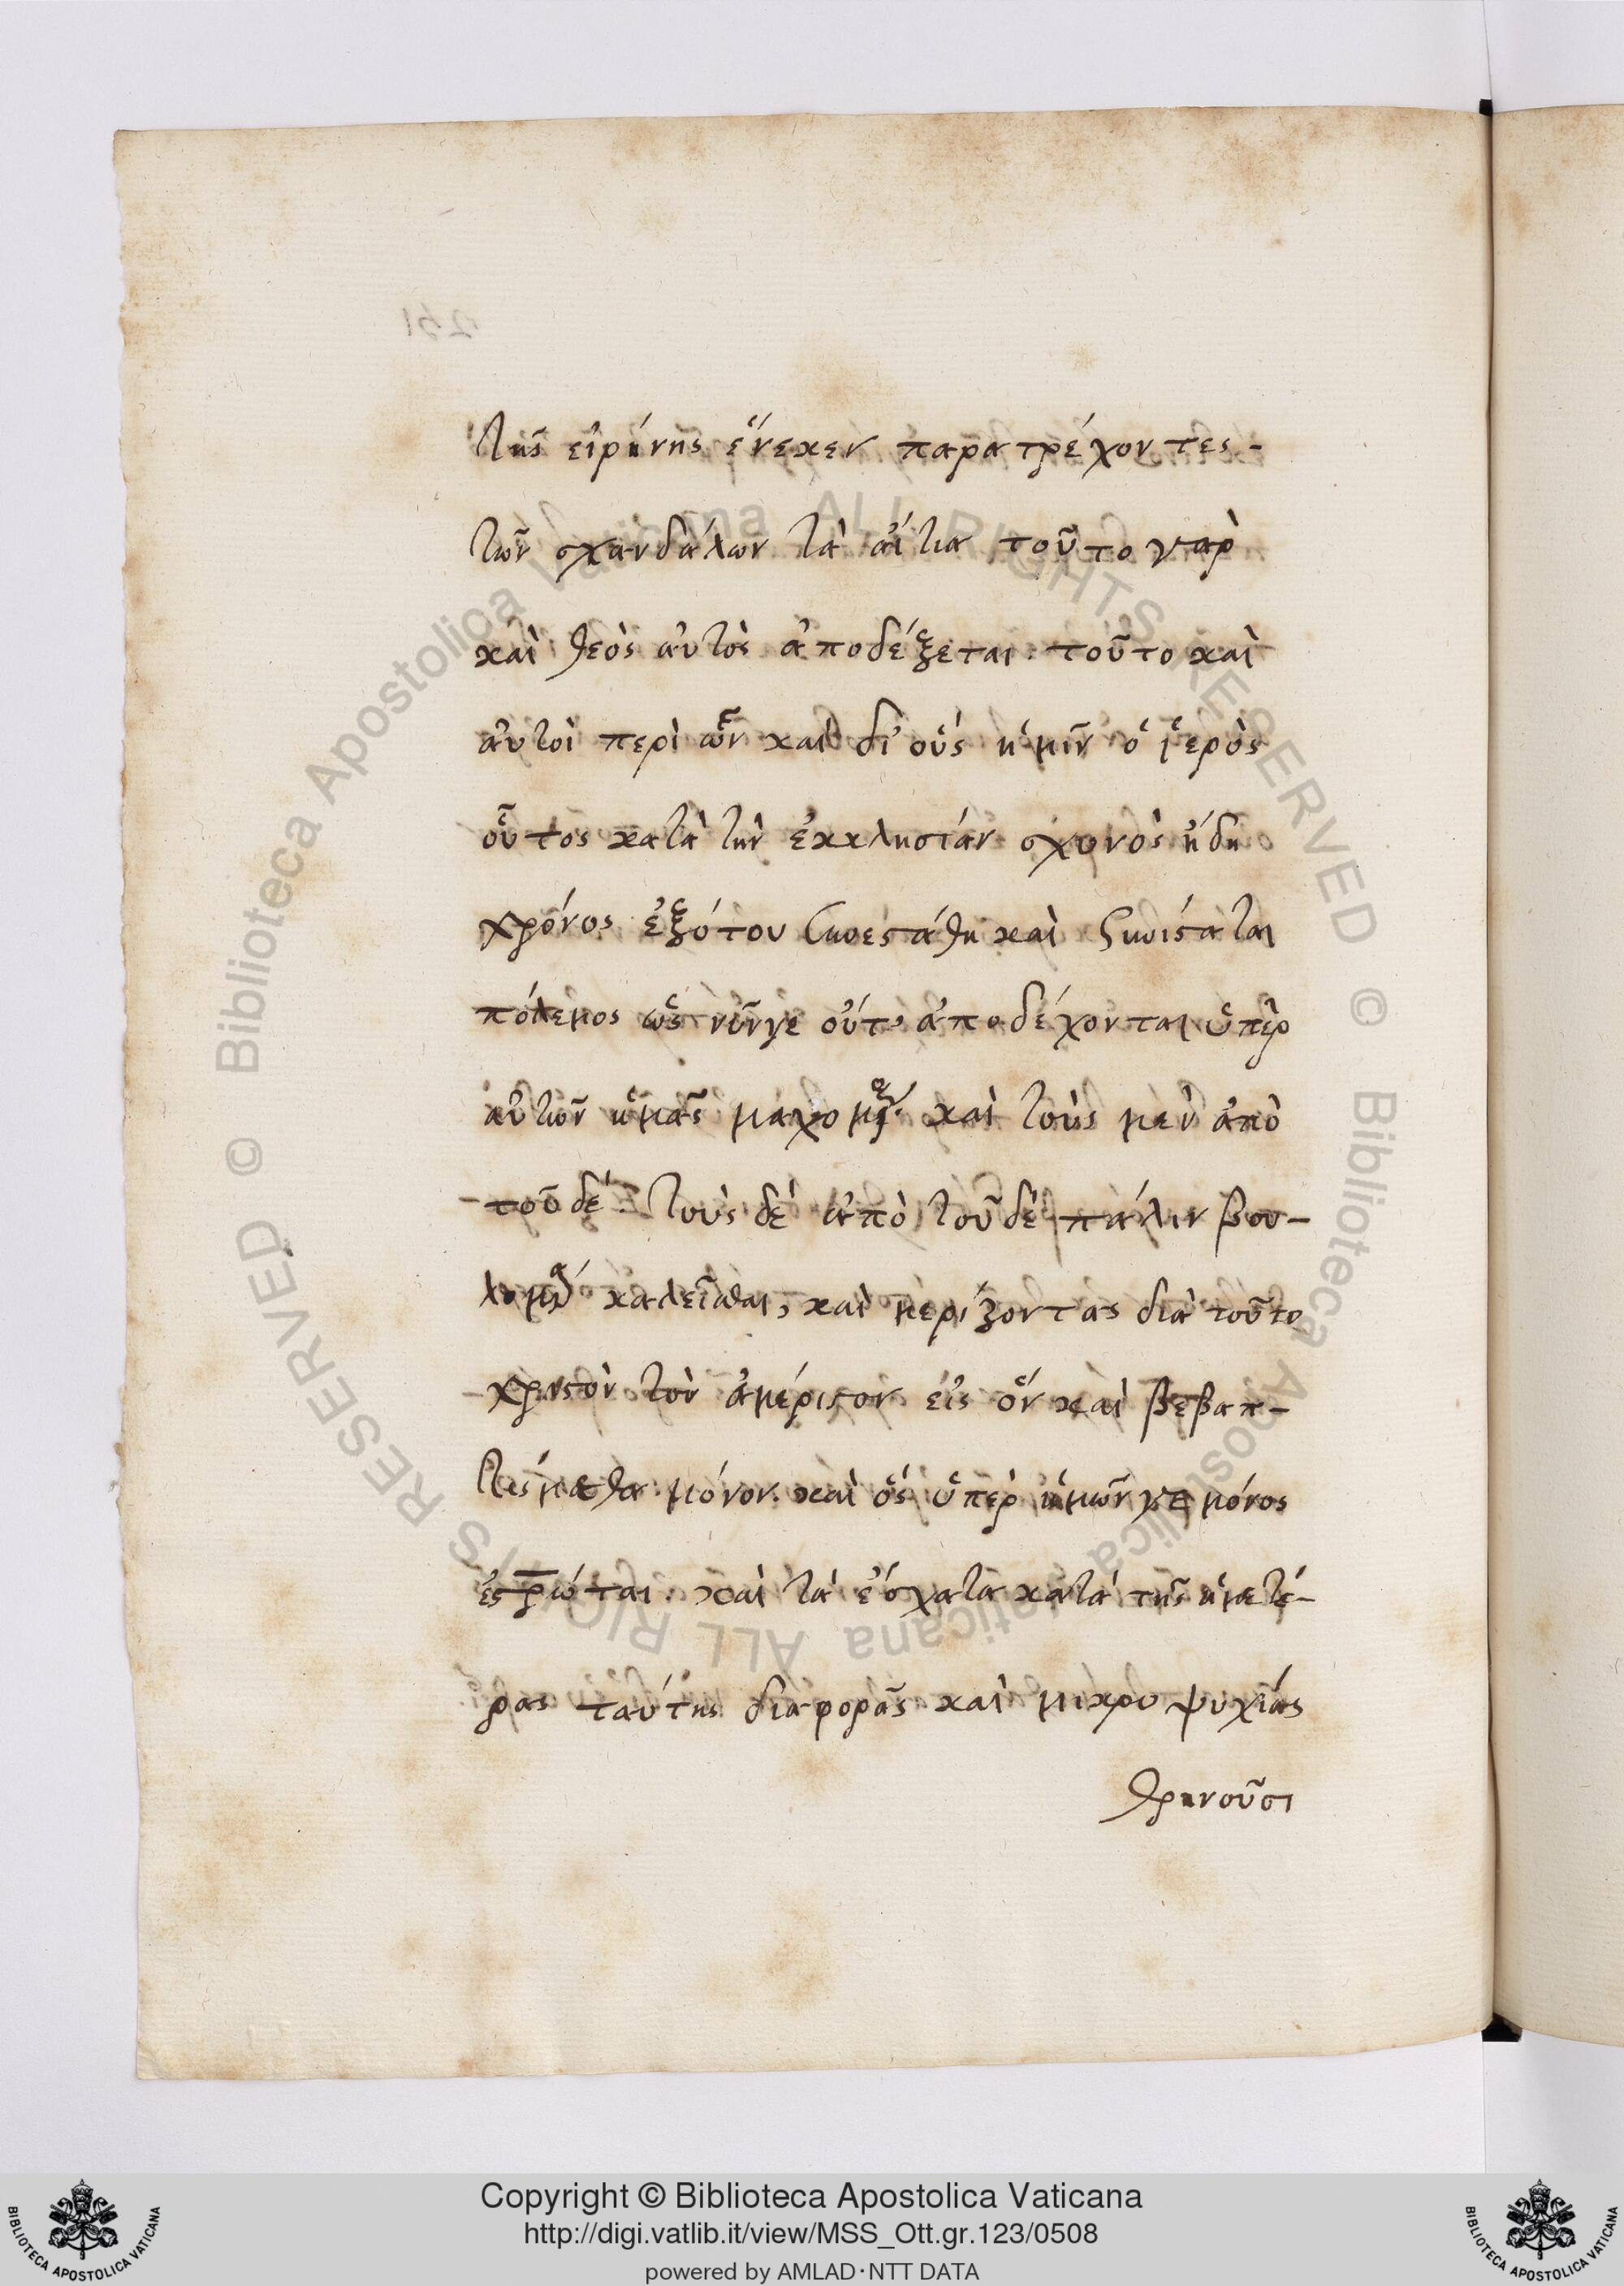 τῆς εἰρήνης ἕνεκεν παρατρέχοντες-
τῶν σκανδάλων τὰ αἴτια τοῦτο γαρ
καὶ θεὸς αὐτὸς ἀποδέξεται· τοῦτο καὶ
αὐτοὶ περὶ ὧν καὶ δι' οὓς ἡμῖν ὁ ἱερὸς
οὗτος κατὰ τὴν ἐκκλησίαν συχνὸς ἤδη
χρόνος ἐξότου συνεστάθη καὶ συνίσταται
πόλεμος ὡς νῦνγε οὔτ' ἀποδέχονται ὑπὲρ
αὐτῶν ἡμᾶς μαχομ καὶ τοὺς μεν ἀπὸ
τοῦδέ· τοὺς δὲ ἀπὸ τοῦδὲ πάλιν βου-
λομ καλεῖσθαι, καὶ μερίζοντας διὰ τοῦτο
χριστὸν τὸν ἀμέριστον εἰς ὃν καὶ βεβαπ-
τίσμεθα μόνον. καὶ ὃς ὑπὲρ ἡμῶν γε μόνος
ἐσρωται· καὶ τὰ ἔσχατα κατὰ τῆς ἡμετέ-
ρας ταύτης διαφορᾶς καὶ μικροψυχίας
θρηνοῦσι
251
Biblioteca Apostolica Vaticana ALL RIGHTS RESERVED ©
Biblioteca Apostolica Vaticana ALL RIGHTS RESERVED ©
Copyright © Biblioteca Apostolica Vaticana
http://digi.vatlib.it/view/MSS_Ott.gr.123/0508
powered by AMLAD·NTT DATA
BIBLIOTECA APOSTOLICA VATICANA
BIBLIOTECA APOSTOLICA VATICANA